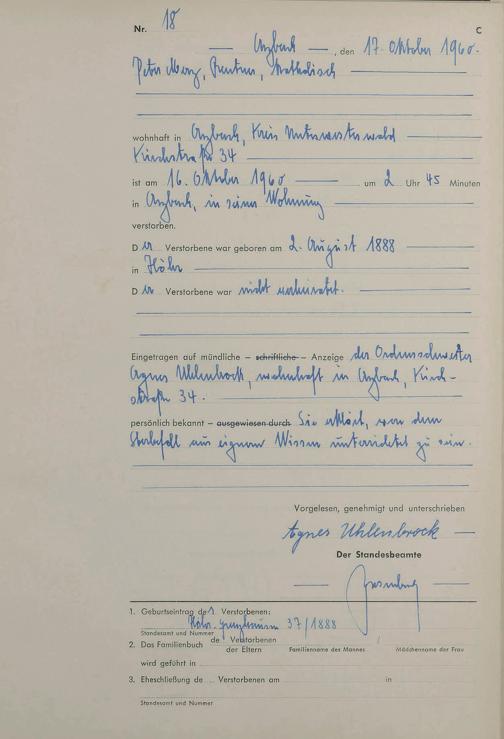 Nr. 18 C
Arzbach, den 17. Oktober 1960.
Peter Merz, Rentner, katholisch
wohnhaft in Arzbach, Kreis Unterwesterwald
Kirchstraße 34
ist am 16. Oktober 1960 um 2 Uhr 45 Minuten
in Arzbach, in seiner Wohnung
verstorben.
Der Verstorbene war geboren am 2. August 1888
in Höhr
Der Verstorbene war nicht verheiratet.
Eingetragen auf mündliche – schriftliche – Anzeige der Ordensschwester
Agnes Uhlenbrock, wohnhaft in Arzbach, Kirch-
straße 34.
persönlich bekannt – ausgewiesen durch Sie erklärt, von dem
Sterbefall aus eignem Wissen unterrichtet zu sein.
Vorgelesen, genehmigt und unterschrieben
Agnes Uhlenbrock
Der Standesbeamte
1. Geburtseintrag des Verstorbenen:
Höhr-Grenzhausen 37/1888
Standesamt und Nummer
2. Das Familienbuch de Verstorbenen
der Eltern Familienname des Mannes Mädchenname der Frau
wird geführt in
3. Eheschließung de Verstorbenen am in
Standesamt und Nummer